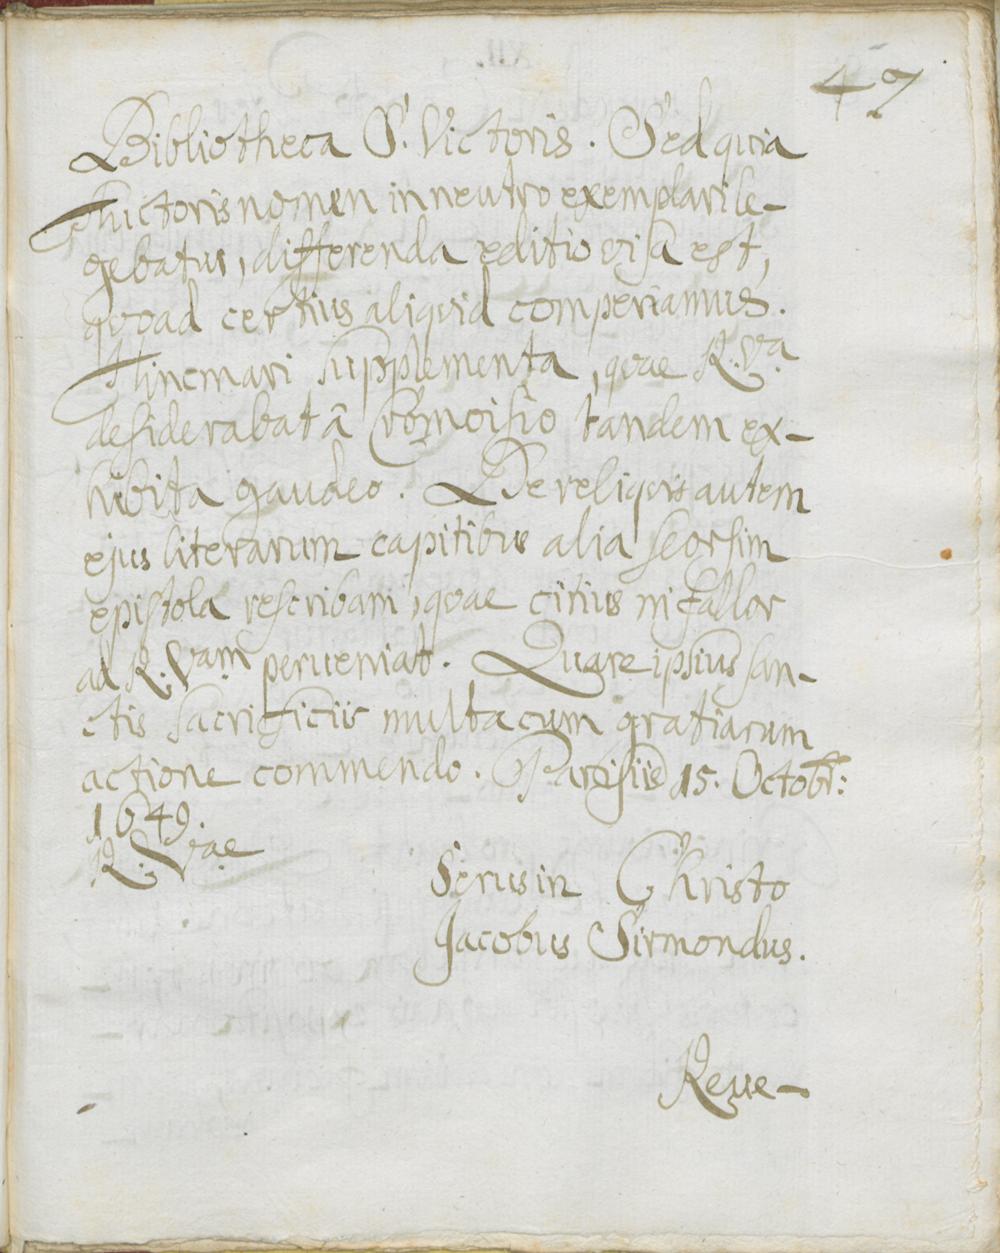 47
Bibliotheca S. Victoris. Sed quia
Auctoris nomen in neutro exemplari le-
gebatur, differenda editio visa est,
quoad certius aliquid comperiamus.
Hincmari supplementa, quae R. Va.
desiderabat â Cromoisio tandem ex-
hibita gaudeo. De reliquis autem
ejus literarum capitibus alia seorsim
epistola rescribam, quae citius ni fallor
ad R. Vam perueniat. Quare ipsius san-
ctis sacrificiis multa cum gratiarum
actione commendo. Parisiis 15. Octobr:
1649.
R. Vae
Seruus in Christo
Jacobus Sirmondus.
Reue-